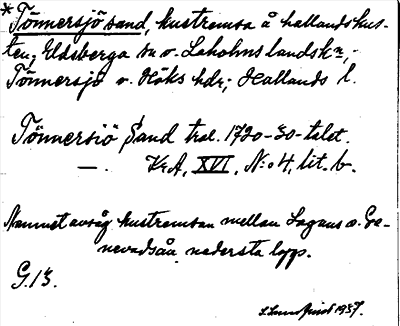 * Tönnersjö sand, kustremsa å hallandskus-
ten; Eldsberga sn o. Laholms landskn,
Tönnersjö o. Höks hdr; Hallands l.
Tönnersiö Sand trol. 1720-30-talet.
— . Kr A, XVI, No 4, lit. b.
Namnet avsåg kustremsan mellan Lagans o. Ge-
nevadsåns nedersta lopp.
G. 13.
1937.